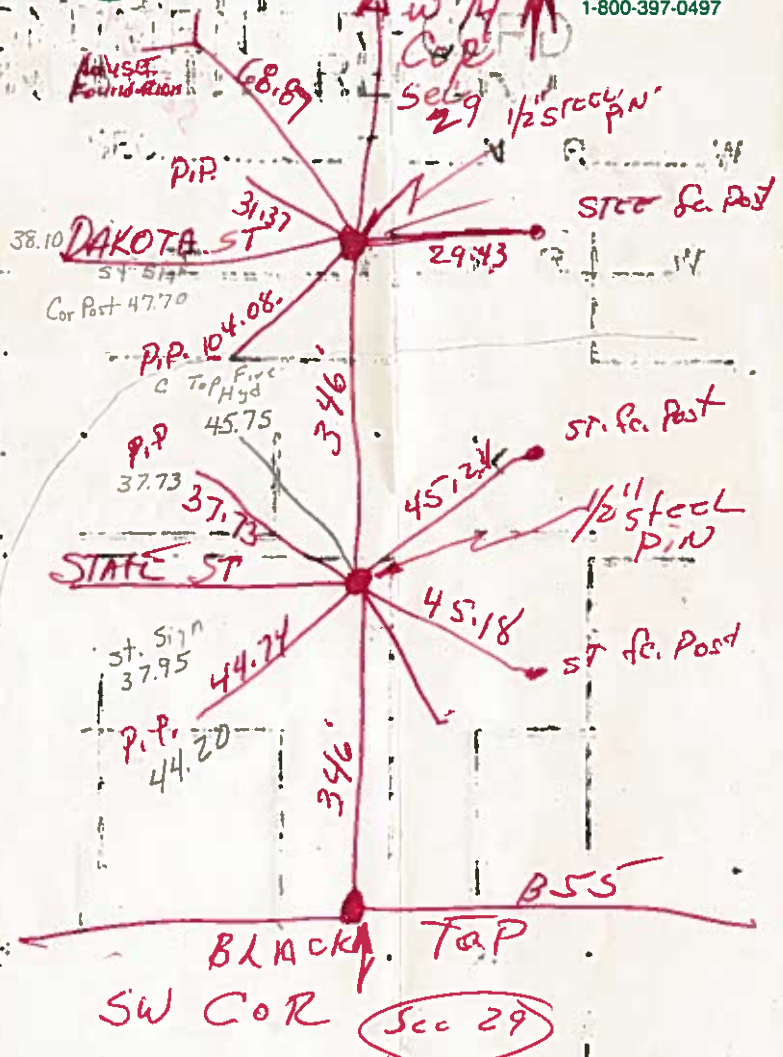 1-800-397-0497
W 1/4
Cor
Sec
29
House
Foundation
68.87
1/2" STEEL
PIN
P.P.
31.37
STEE fc. Post
38.10
DAKOTA ST
29.43
St Sign
Cor Post 47.70
P.P. 104.08
C Top Fire
Hyd
45.75
346'
P.P
37.73
37.73
ST. fc. Post
45.24
1/2" Steel
PIN
STATE ST
45.18
st. Sign
37.95
44.74
ST fc. Post
P.P.
44.20
346'
B 55
BLACK TOP
SW COR
Sec 29